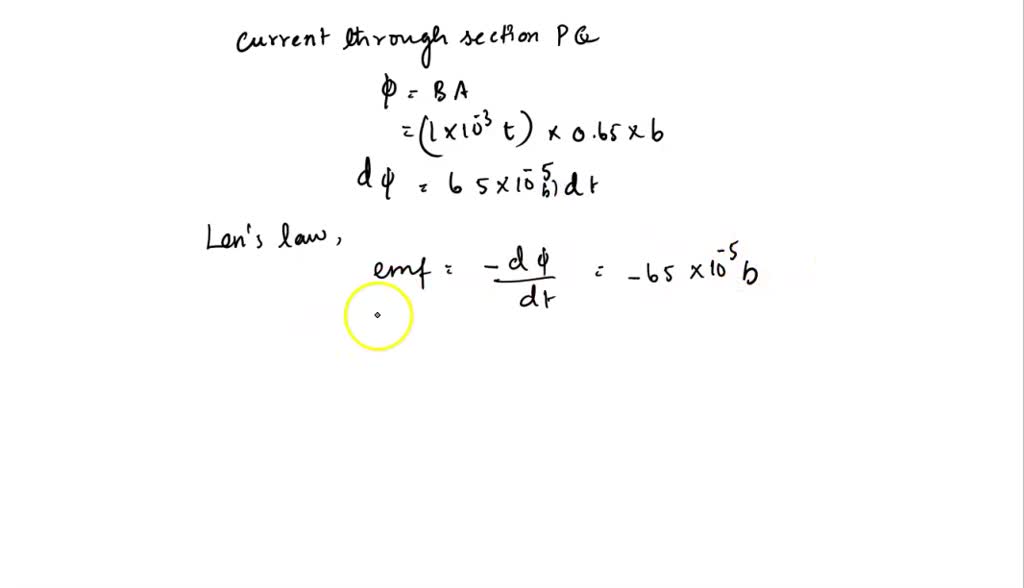 Current through section PQ
φ = BA
= (1 × 10⁻³ t) × 0.65 × b
dφ = 65 × 10⁻⁵ b) dt
Len's law,
emf = -dφ/dt = -65 × 10⁻⁵ b